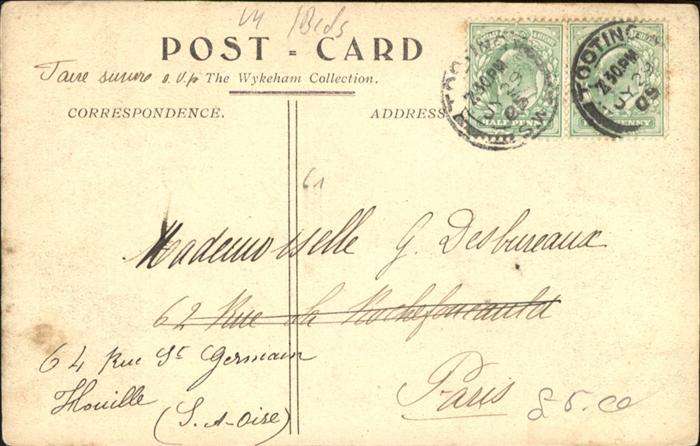 Beds
POST - CARD
Faire suivre s.v.p The Wykeham Collection.
CORRESPONDENCE. ADDRESS
TOOTING
7.30PM
JY 23
09
S.W.
HALF PENNY
TOOTING
7.30PM
JY 23
09
PENNY
61
Mademoiselle G. Desbureaux
62 Rue de la Rochefoucauld
64 Rue St Germain
Houille
(S. et Oise)
Paris
85.00